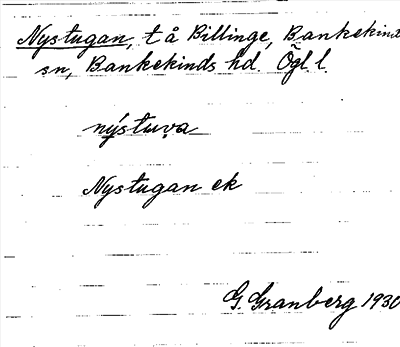 Nystugan, t å Billinge, Bankekind
sn, Bankekinds hd. Ögl l.
nýstuva
Nystugan ek
G. Granberg 1930